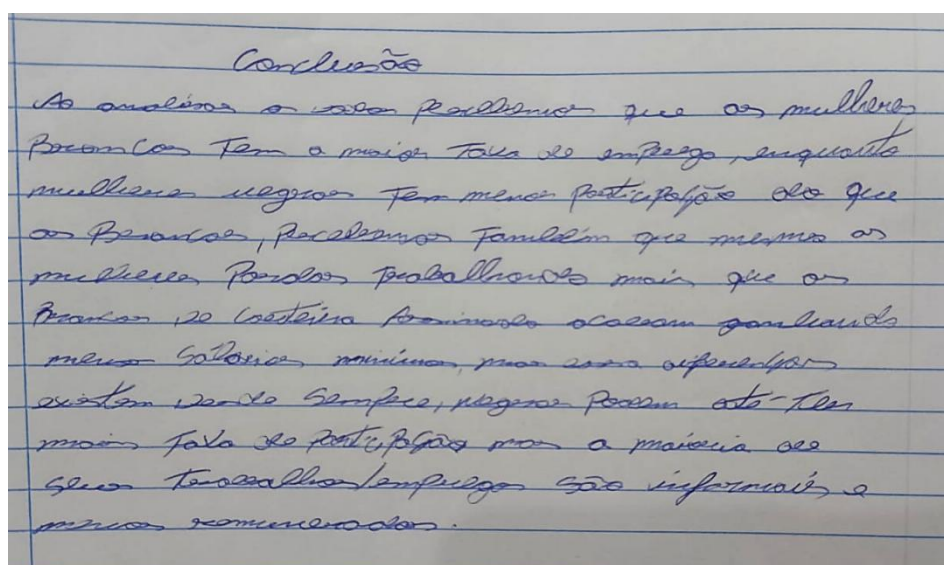 Conclusão
Ao analisar o percebemos que as mulheres
Brancas Tem a maior Taxa de emprego, enquanto
mulheres negras Tem menor participação do que
as Brancas, percebemos Também que mesmo as
mulheres Pardas trabalhando mais que as
Brancas de carteira Assinada acabam ganhando
menos Salários mínimos, mas essa diferenças
existem desde Sempre, negras Podem até Ter
mais Taxa de participação mas a maioria de
seus Trabalhos/empregos são informais e
menos remunerados.